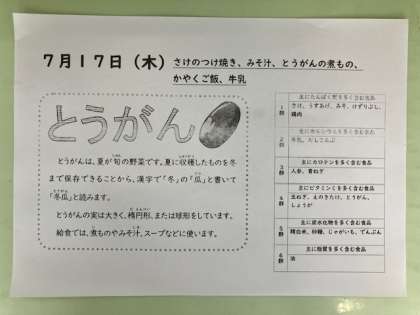 7月17日(木) さけのつけ焼き、みそ汁、とうがんの煮もの、
かやくご飯、牛乳
とうがん
とうがんは、夏が旬の野菜です。夏に収穫したものを冬
まで保存できることから、漢字で「冬」の「瓜」と書いて
「冬瓜」と読みます。
とうがんの実は大きく、楕円形、または球形をしています。
給食では、煮ものやみそ汁、スープなどに使います。
主にたんぱく質を多く含む食品
1群
さけ、うすあげ、みそ、けずりぶし、
鶏肉
主にカルシウムを多く含む食品
2群
牛乳、だしこんぶ
主にカロテンを多く含む食品
3群
人参、青ねぎ
主にビタミンCを多く含む食品
4群
玉ねぎ、えのきたけ、とうがん、
しょうが
主に炭水化物を多く含む食品
5群
精白米、砂糖、じゃがいも、でんぷん
主に脂質を多く含む食品
6群
油